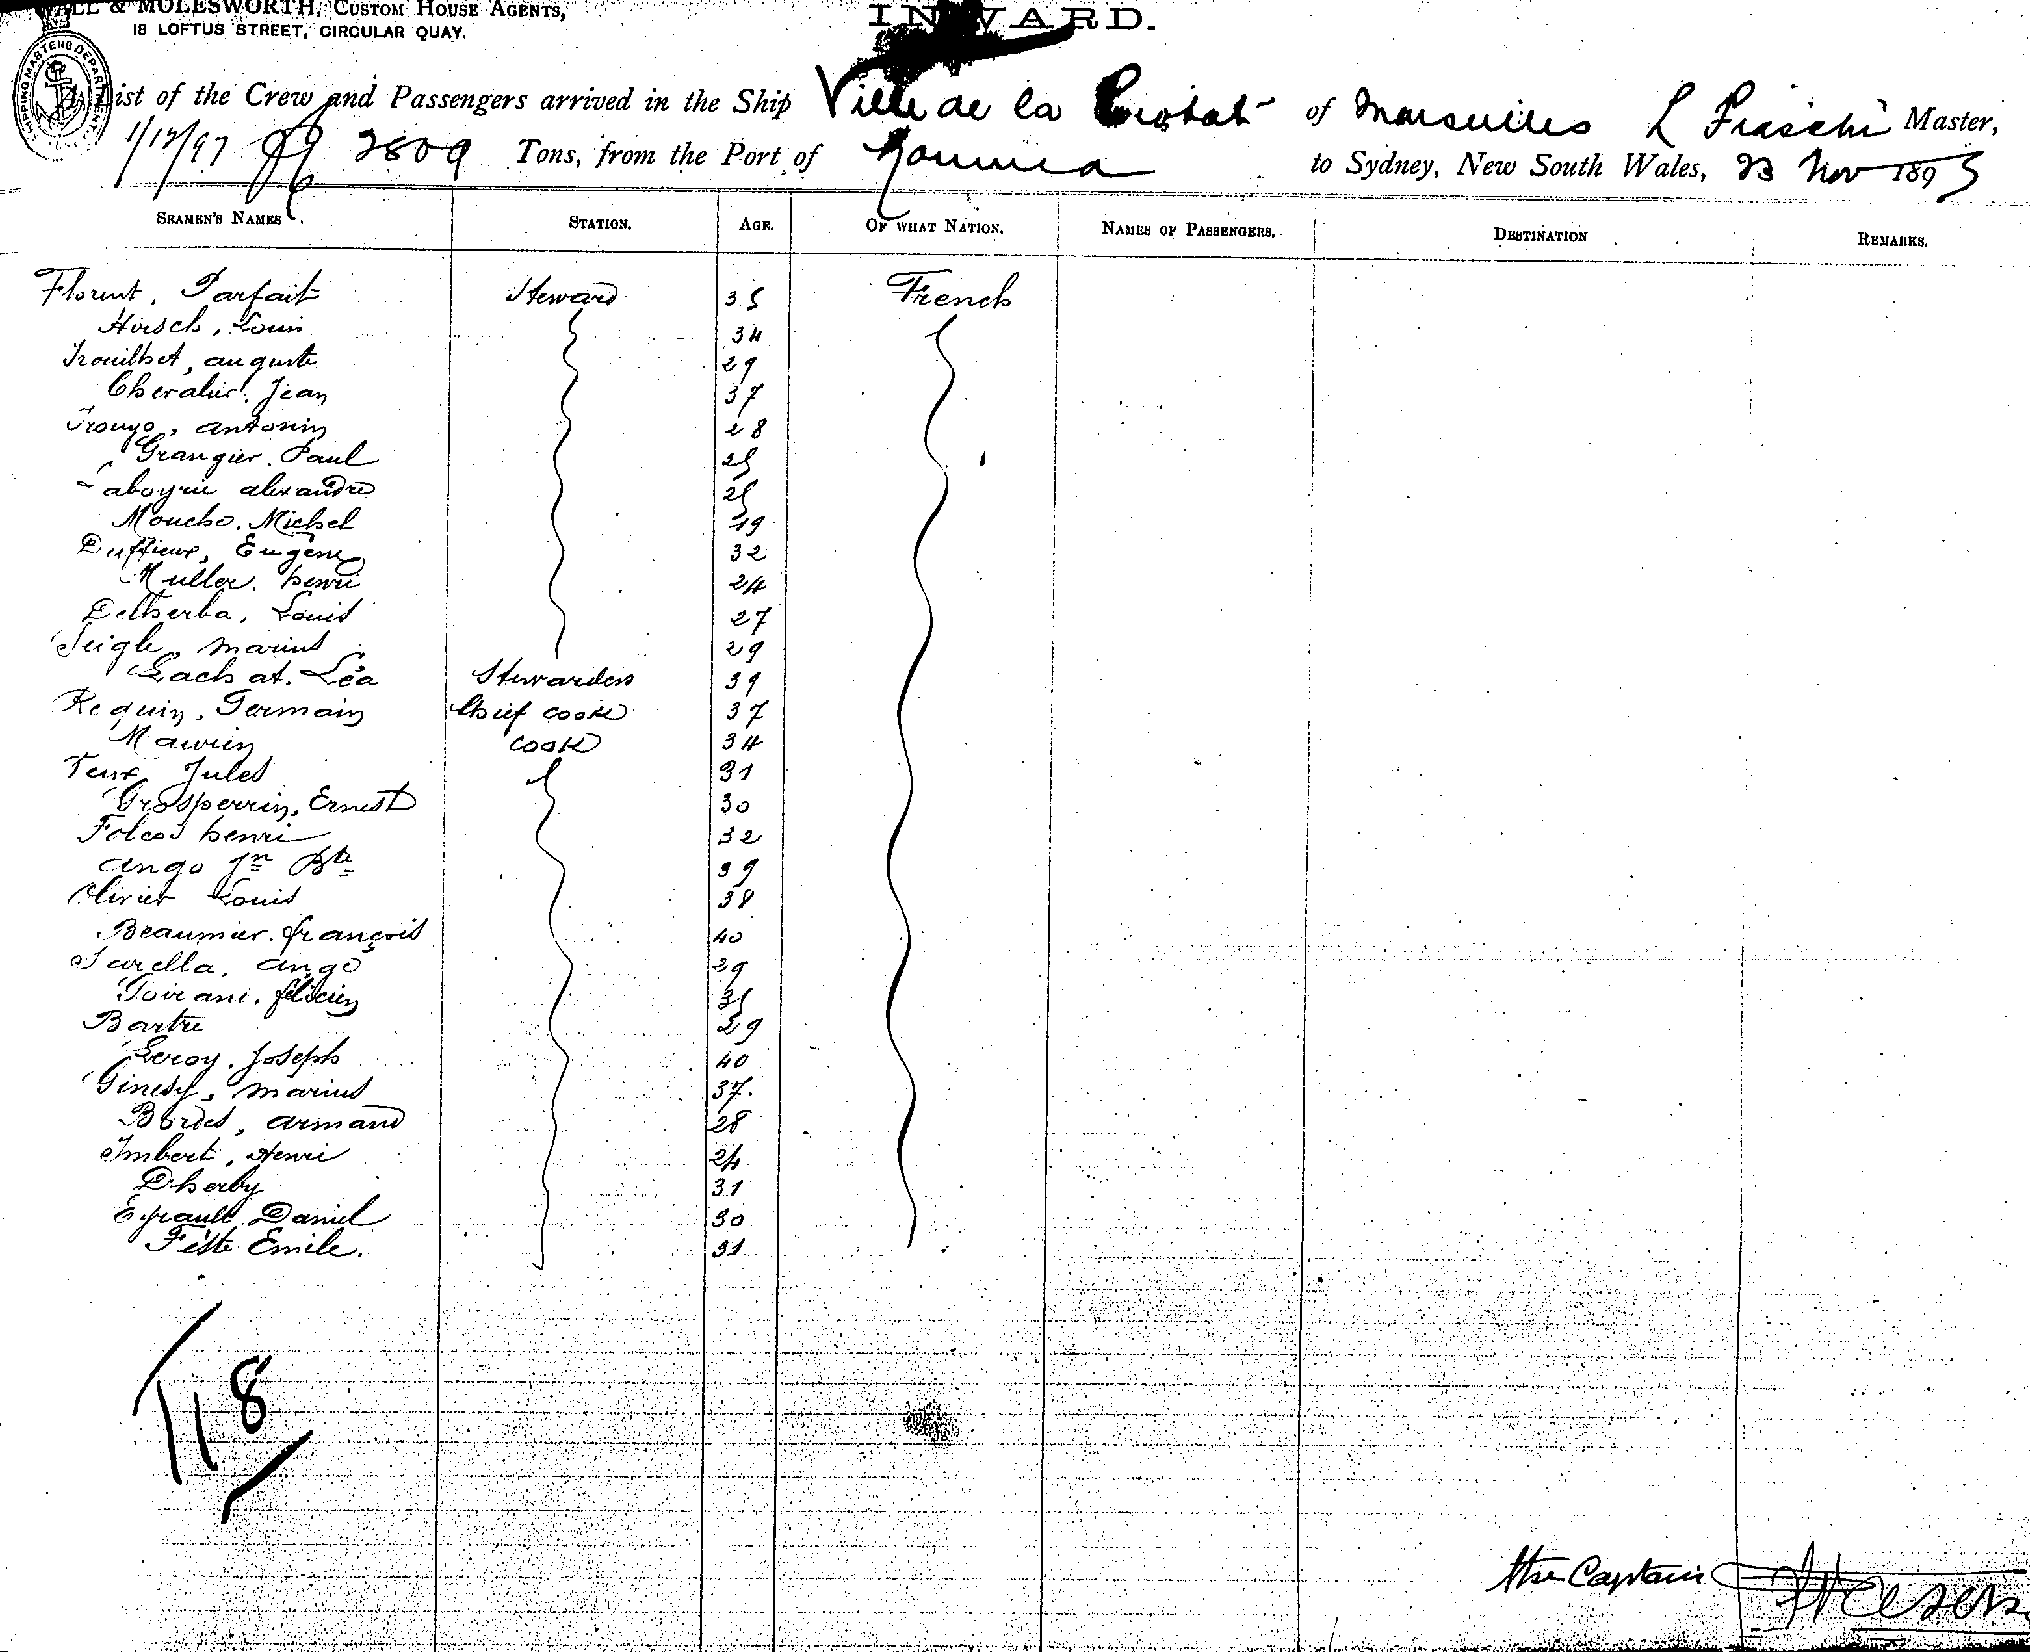 LL & MOLESWORTH, CUSTOM HOUSE AGENTS,
18 LOFTUS STREET, CIRCULAR QUAY.
INWARD.
SHIPPING MASTERS DEPARTMENT
List of the Crew and Passengers arrived in the Ship Ville de la Ciotat of Marseilles L Fiaschi Master,
1/12/97 2809 Tons, from the Port of Noumea to Sydney, New South Wales, 23 Nov 1897
SEAMEN'S NAMES. STATION. AGE. OF WHAT NATION. NAMES OF PASSENGERS. DESTINATION REMARKS.
Florent, Parfait Steward 35 French
Hirsch, Louis 34
Trouilhet, auguste 29
Chevalier, Jean 37
antonin 28
Grangier. Paul 25
Laboyrie alexandre 25
Moucho. Michel 49
Duffieux, Eugène 32
Muller. henri 24
Delherba, Louis 27
Seigle, marius 29
Lachat. Léa Stewardess 39
Requin, Germain Chief cook 37
Maurin cook 34
Jules 31
Grosperrin, Ernest 30
Folcos henri 32
ango Jn Bte 39
Olivier Louis 38
Beaumier. françois 40
ango 29
Goirani. félicien 35
Bartre 29
Leroy. Joseph 40
Ginesy, marius 37.
Bordes, armand 28
Imbert, Henri 24
Dherby 31
Daniel 30
Féste Emile. 31
118
the Captain